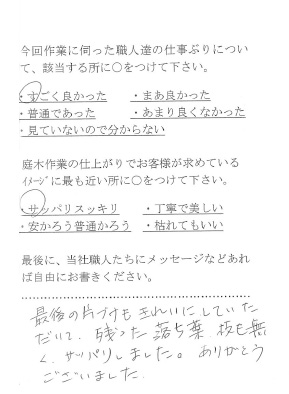 今回作業に伺った職人達の仕事ぶりについ
て、該当する所に○をつけて下さい。
・すごく良かった ・まあ良かった
・普通であった ・あまり良くなかった
・見ていないので分からない
庭木作業の仕上がりでお客様が求めている
ｲﾒｰｼﾞに最も近い所に○をつけて下さい。
・サッパリスッキリ ・丁寧で美しい
・安かろう普通かろう ・枯れてもいい
最後に、当社職人たちにメッセージなどあれ
ば自由にお書きください。
最後の片づけもきれいにしていた
だいて、残った落ち葉、枝も無
く、サッパリしました。ありがとう
ございました。